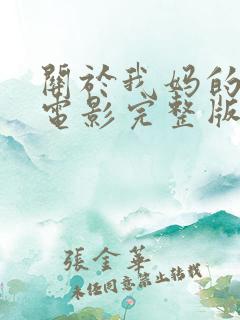 關於我妈的
電影完整版
張金華
未经同意禁止转载